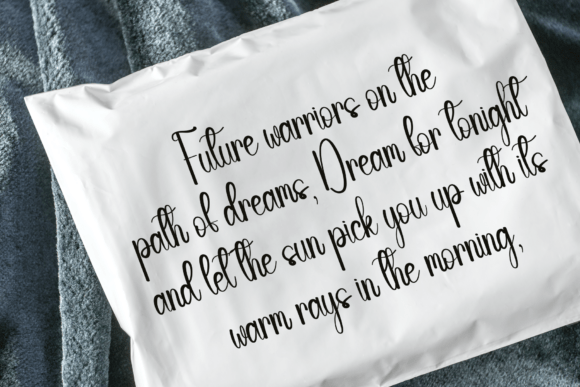 Future warriors on the
path of dreams, Dream for tonight
and let the sun pick you up with its
warm rays in the morning,